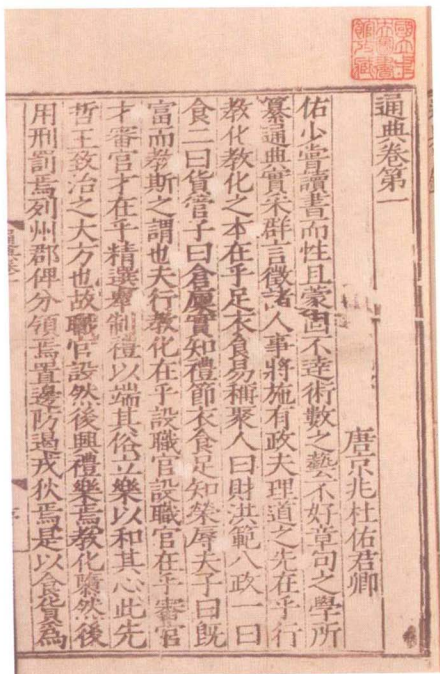 通典卷第一
唐京兆杜佑君卿
佑少嘗讀書而性且蒙固不達術數之藝不好章句之學所
纂通典實采群言徵諸人事將施有政夫理道之先在乎行
教化教化之本在乎足衣食易稱聚人曰財洪範八政一曰
食二曰貨管子曰倉廩實知禮節衣食足知榮辱夫子曰既
富而教斯之謂也夫行教化在乎設職官設職官在乎審官
才審官才在乎精選舉制禮以端其俗立樂以和其心此先
哲王致治之大方也故職官設然後興禮樂焉教化隳然後
用刑罰焉列州郡俾分領焉置邊防遏戎狄焉是以食貨為